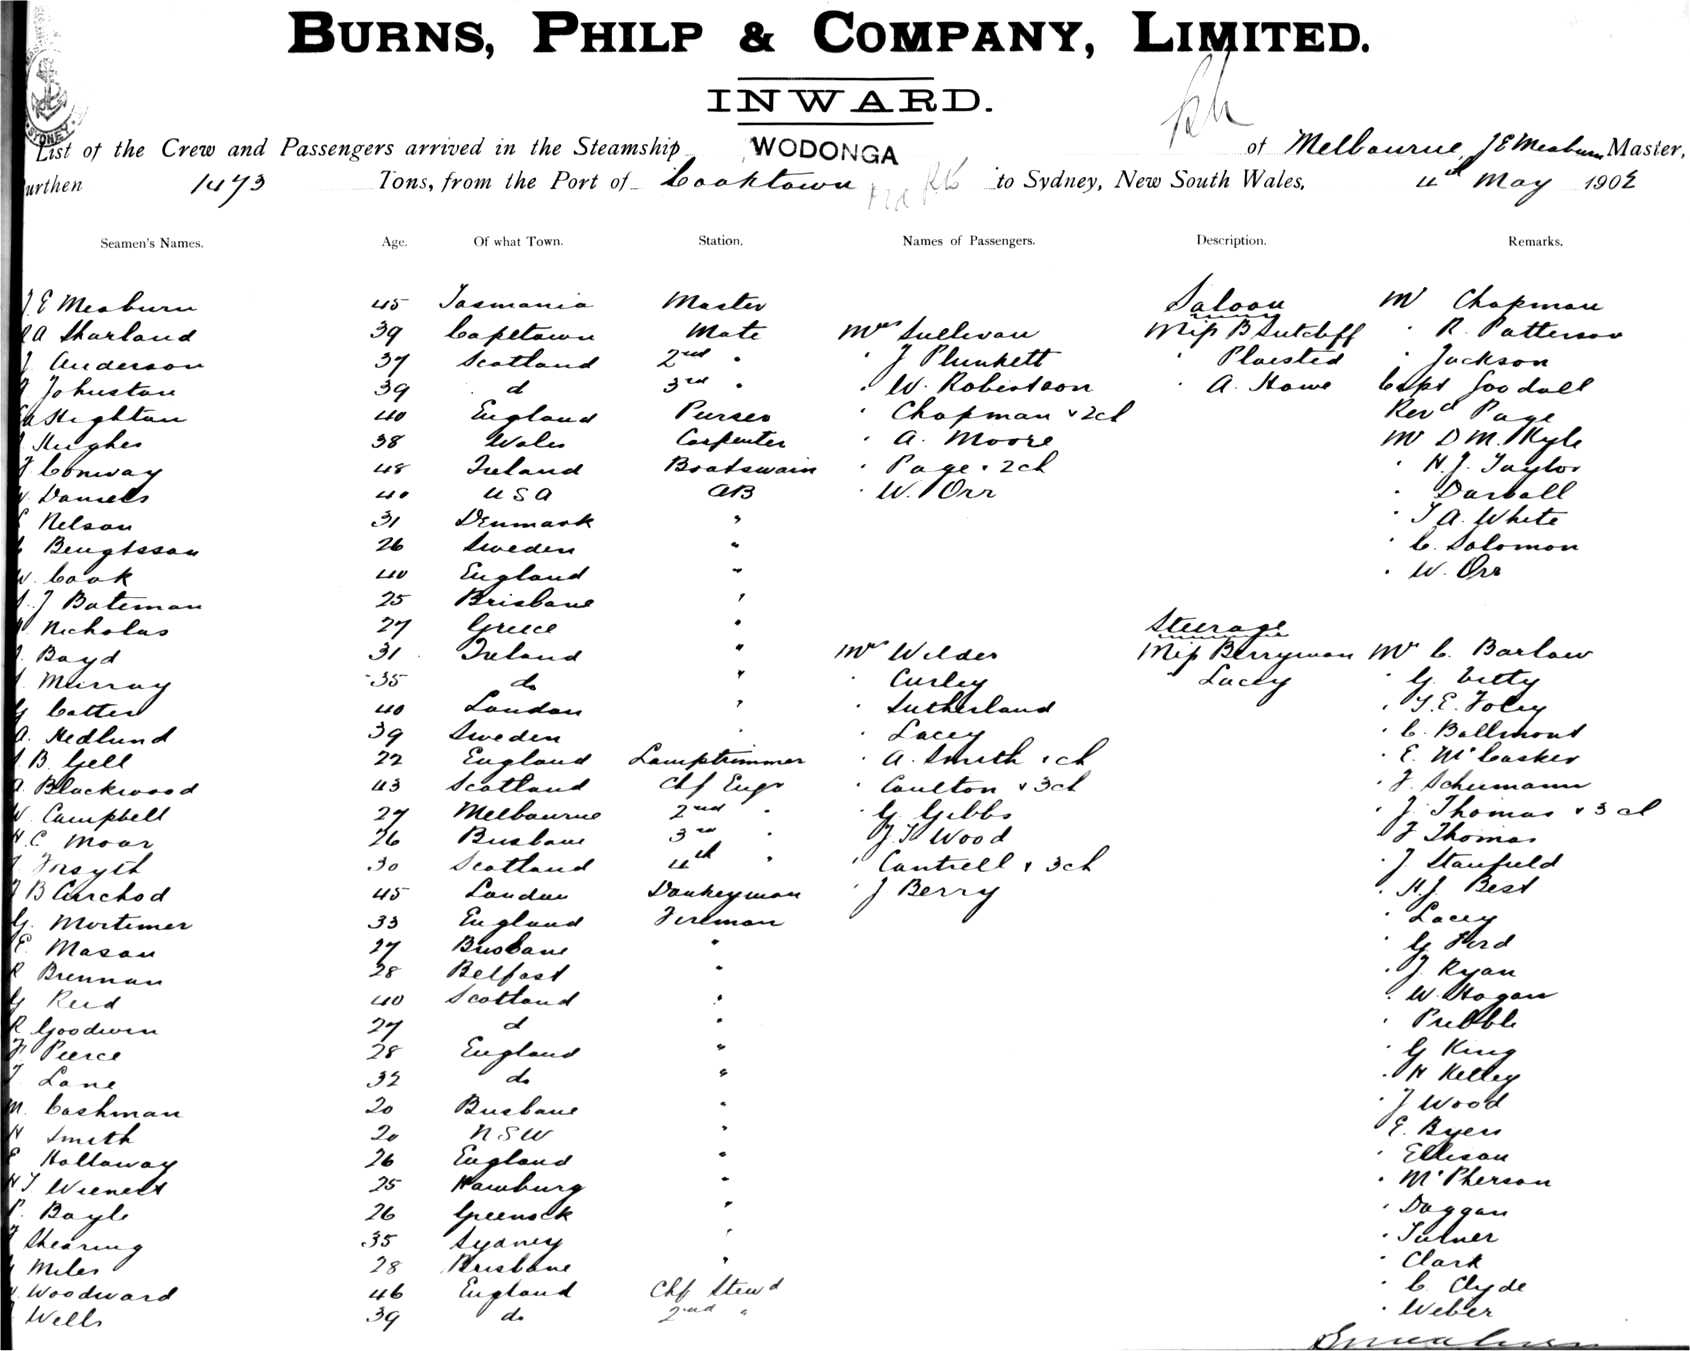 BURNS, PHILP & COMPANY, LIMITED.
INWARD.
SYDNEY
List of the Crew and Passengers arrived in the Steamship WODONGA of Melbourne, J E Meaburn Master,
urthen 1473 Tons, from the Port of Cooktown to Sydney, New South Wales, 4th May 1902
Seamen's Names. Age. Of what Town. Station. Names of Passengers. Description. Remarks.
J. E Meaburn 45 Tasmania Master Saloon Mr Chapman
A Sharland 39 Capetown Mate Mrs Sullivan Miss B Sutcliff " R. Patterson
J. Anderson 37 Scotland 2nd " " J Plunkett " Plaisted " Jackson
Johnston 39 d 3rd " " W. Robertson " A. Howe Capt Goodall
Highton 40 England Purser " Chapman & 2ch Revd Page
Hughes 38 Wales Carpenter " A. Moore Mr D M. Kyle
J Conway 48 Ireland Boatswain " Page & 2ch " H. J. Taylor
W. Daniels 40 USA AB " W. Orr " Darvall
Nelson 31 Denmark " " T A. White
Bengtsson 26 Sweden " " C. Solomon
W. Cook 40 England " " W. Orr
J Bateman 25 Brisbane "
Nicholas 27 Greece " Steerage
Boyd 31 Ireland " Mrs Wilder Miss Berryman Mr C. Barlow
Murray 35 do " " Curley " Lacey " G. Vitty
G Cotter 40 London " " Sutherland " T. E. Foley
A. Hedlund 39 Sweden " " Lacey " C. Ballmont
B. Gell 22 England Lamptrimmer " A. Smith & ch " E. McCasker
A. Blackwood 43 Scotland Chf Engr " Coulton & 3ch " F. Schumann
W. Campbell 27 Melbourne 2nd " " G. Gibbs " J. Thomas & 3 ch
H. C. Moar 26 Brisbane 3rd " " J. T. Wood " J Thomas
J Forsyth 30 Scotland 4th " " Cantrell & 3ch " J Stanfield
J B Curchod 45 London Donkeyman " J Berry " H J. Best
G. Mortimer 33 England Fireman " Lacey
E. Mason 27 Brisbane " " G Ford
R Brennan 28 Belfast " " J. Ryan
G Reid 40 Scotland " " W. Hogan
R Goodwin 27 d " " Pribble
F Pierce 28 England " " G King
T. Lane 32 do " " H Kelley
M. Cashman 20 Brisbane " " J Wood
H Smith 20 NSW " " E. Byers
E Hollaway 26 England " " Ellison
H J Wienelt 25 Hamburg " " McPherson
P. Boyle 26 Greenock " " Duggan
J Shearing 35 Sydney " " Turner
Miles 28 Brisbane " " Clark
Woodward 46 England Chf Stewd " C. Clyde
Wells 39 do 2nd " " Weber